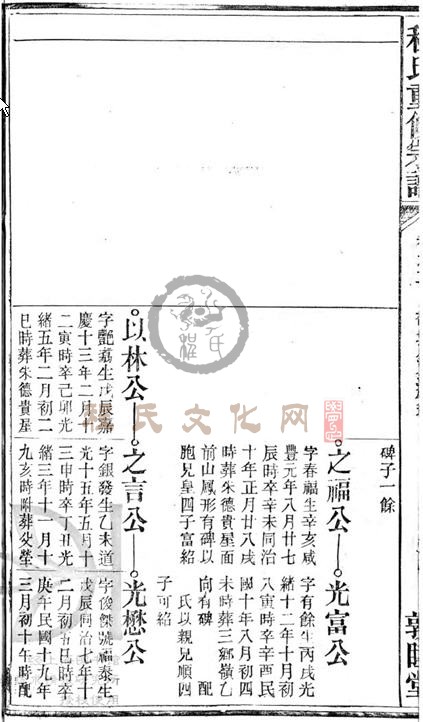 程氏重修宗譜
敦睦堂
碑子一餘
之福公
字春福生辛亥咸
豐元年八月廿七
辰時卒辛未同治
十年正月廿八戌
時葬朱德貴星面
前山鳳形有碑以
胞兄皇四子富紹
光富公
字有餘生丙戌光
緒十二年十月初
八寅時卒辛酉民
國十年八月初四
未時葬三鄉嶺乙
向有碑 配
氏以親兄順四
子可紹
以林公
字艷嘉生戊辰嘉
慶十三年二月十
二寅時卒己卯光
緒五年二月初二
巳時葬朱德貴星
之言公
字銀發生乙未道
光十五年五月十
三申時卒丁丑光
緒三年十一月十
九亥時附葬父塋
光懋公
字俊傑號福泰生
戊辰同治七年十
二月初 巳時卒
庚午民國十九年
三月初十午時配
程氏文化网